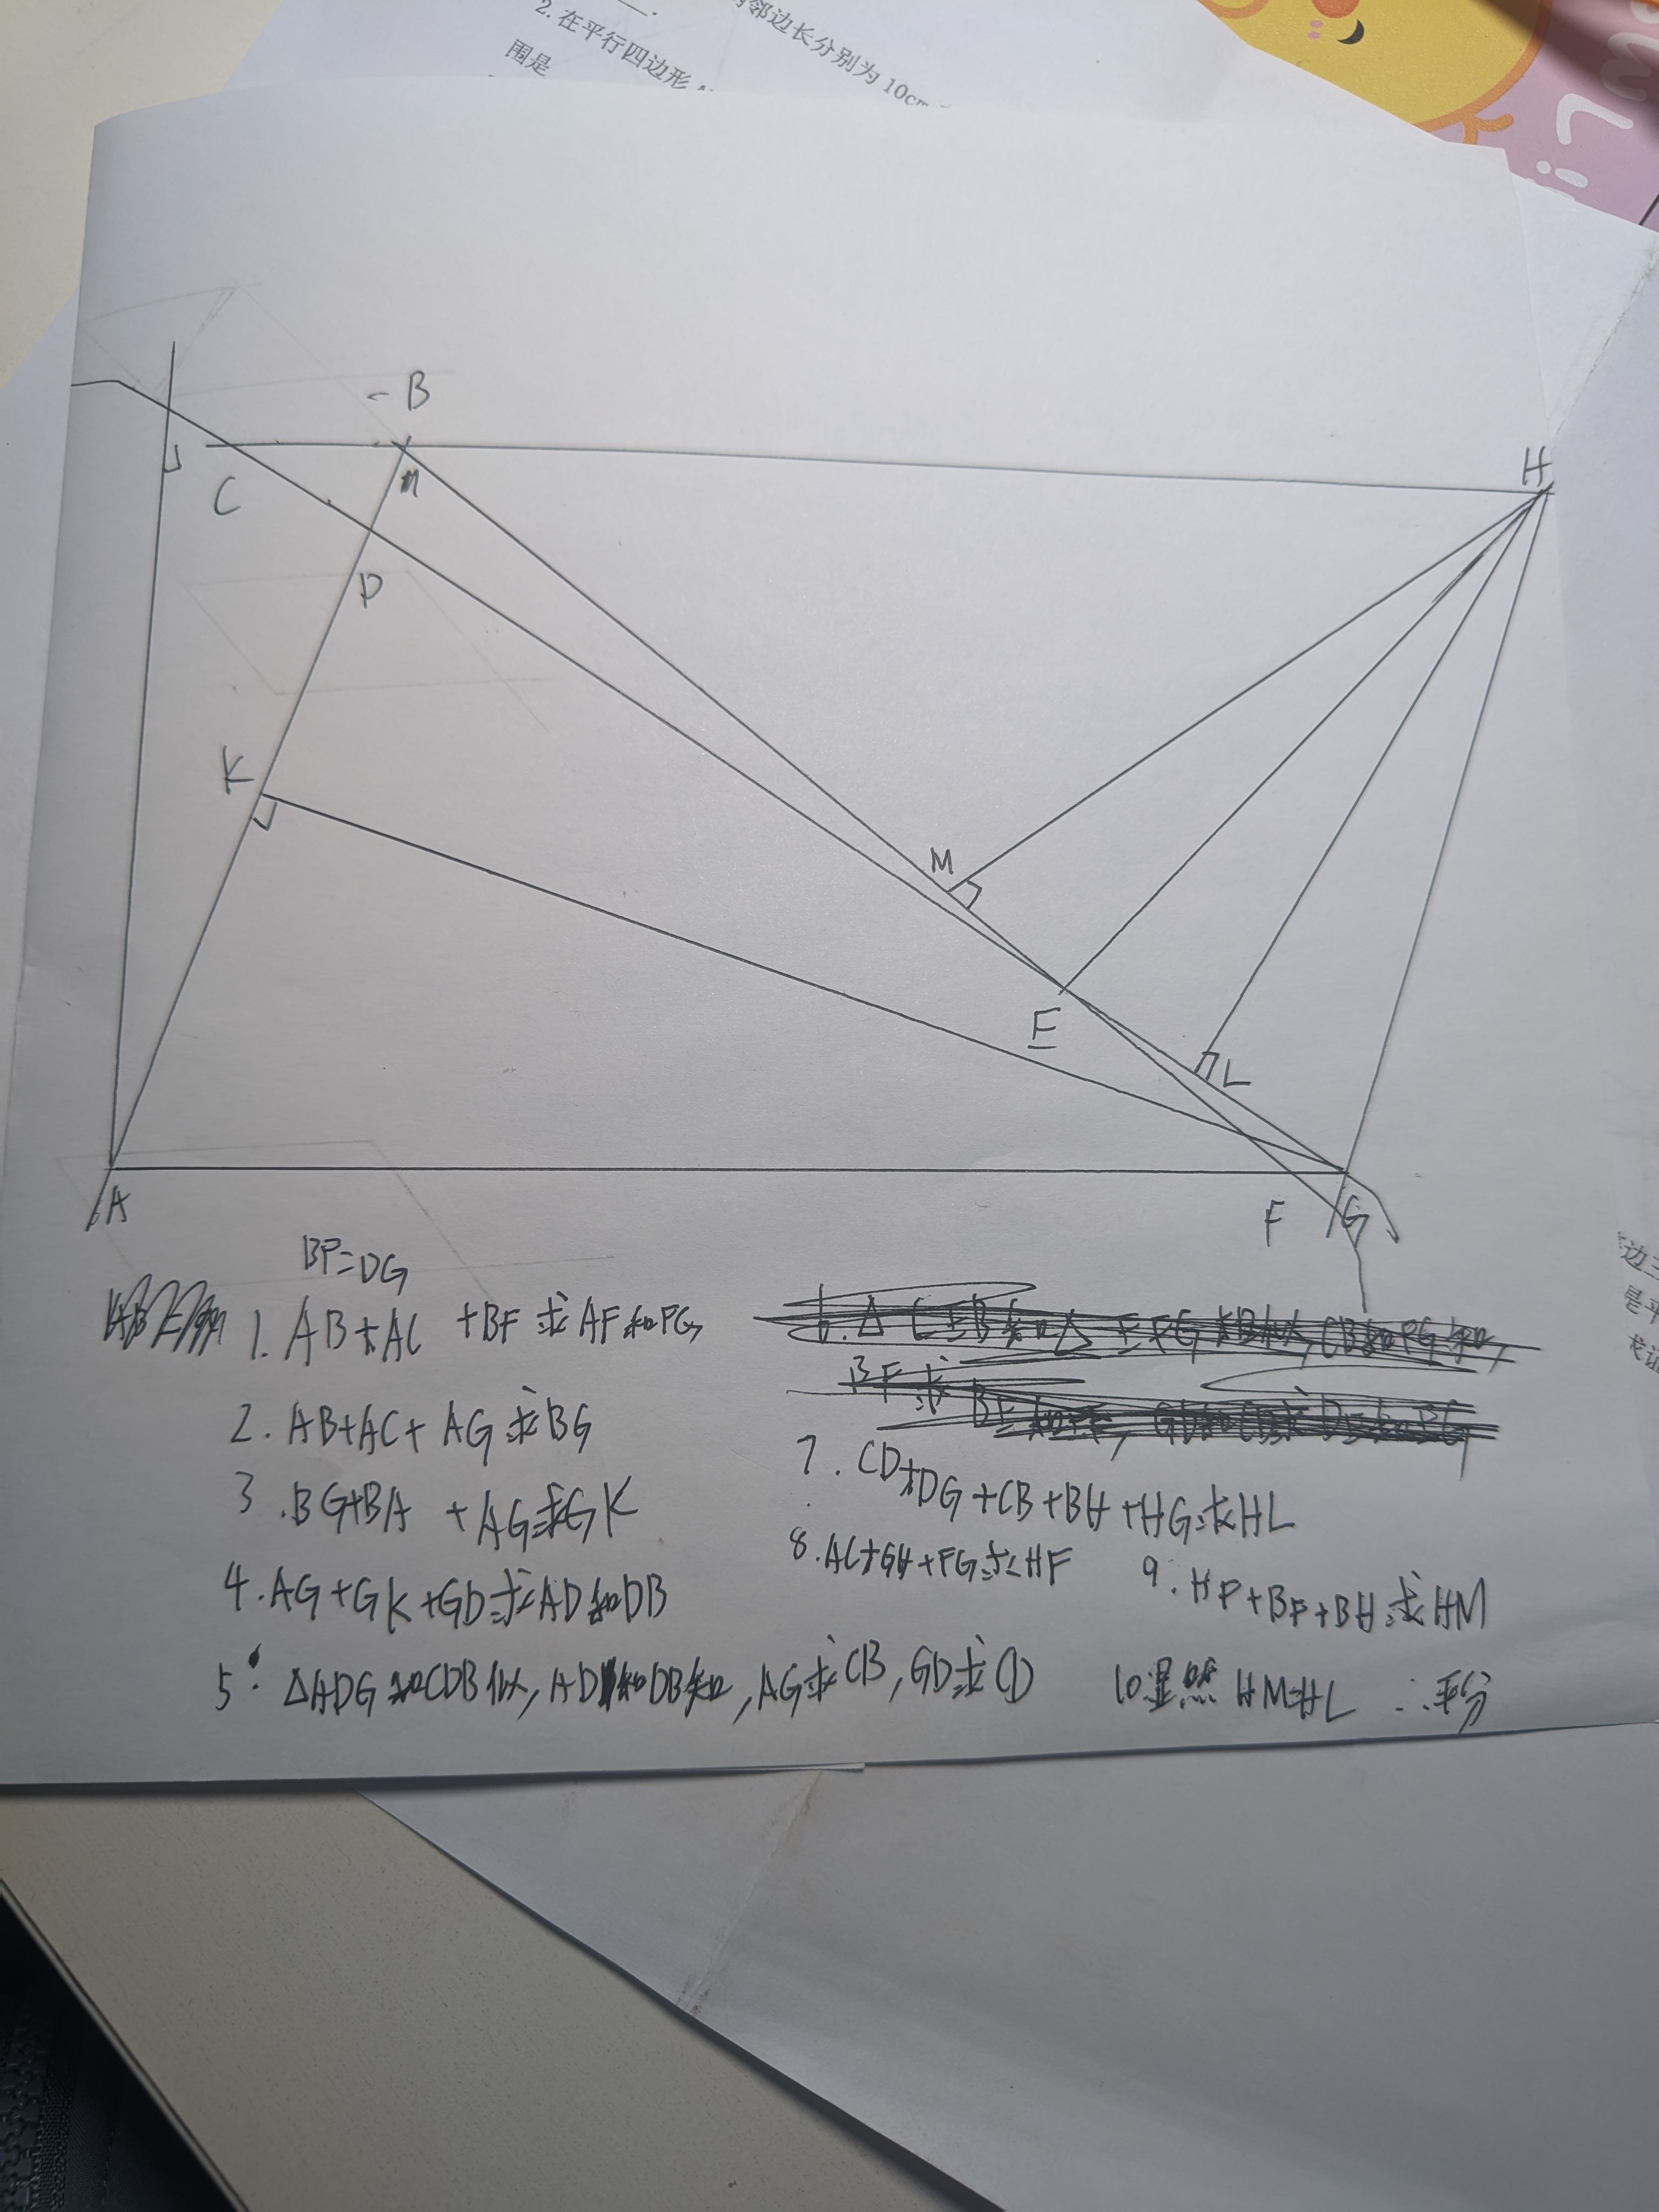 邻边长分别为 10cm
2. 在平行四边形
围是
B
H
C
D
K
M
E
L
A
F
G
BF=DG
1. AB+AC +BF 求 AF和FG
2. AB+AC+ AG 求BG
3. BG+BA +AG求GK
4. AG+GK+GD求AD和DB
5. △ADG和CDB似, AD和DB知, AG求CB, GD求CD
7. CD+DG+CB+BH+HG求HL
8. AC+GH+FG求HF
9. HF+BF+BH求HM
10显然 HM=HL ∴平分